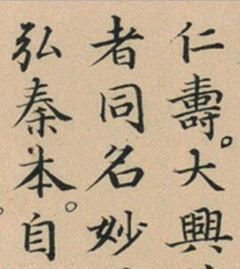 仁壽大興
者同名妙
弘秦本自